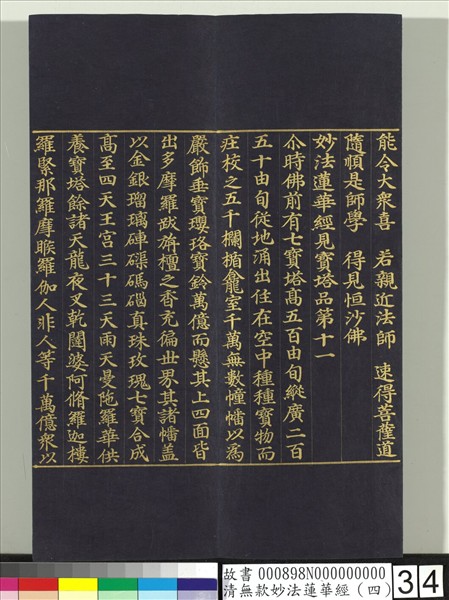 能令大衆喜　若親近法師　速得菩薩道
隨順是師學　得見恒沙佛
妙法蓮華經見寶塔品第十一
尒時佛前有七寶塔高五百由旬縱廣二百
五十由旬從地涌出住在空中種種寶物而
莊校之五千欄楯龕室千萬無數幢幡以為
嚴飾垂寶瓔珞寶鈴萬億而懸其上四面皆
出多摩羅跋旃檀之香充徧世界其諸幡盖
以金銀瑠璃硨磲碼碯真珠玫瑰七寶合成
高至四天王宮三十三天雨天曼陁羅華供
養寶塔餘諸天龍夜叉乾闥婆阿脩羅迦樓
羅緊那羅摩睺羅伽人非人等千萬億衆以
故書 000898N000000000
清無款妙法蓮華經（四）
34